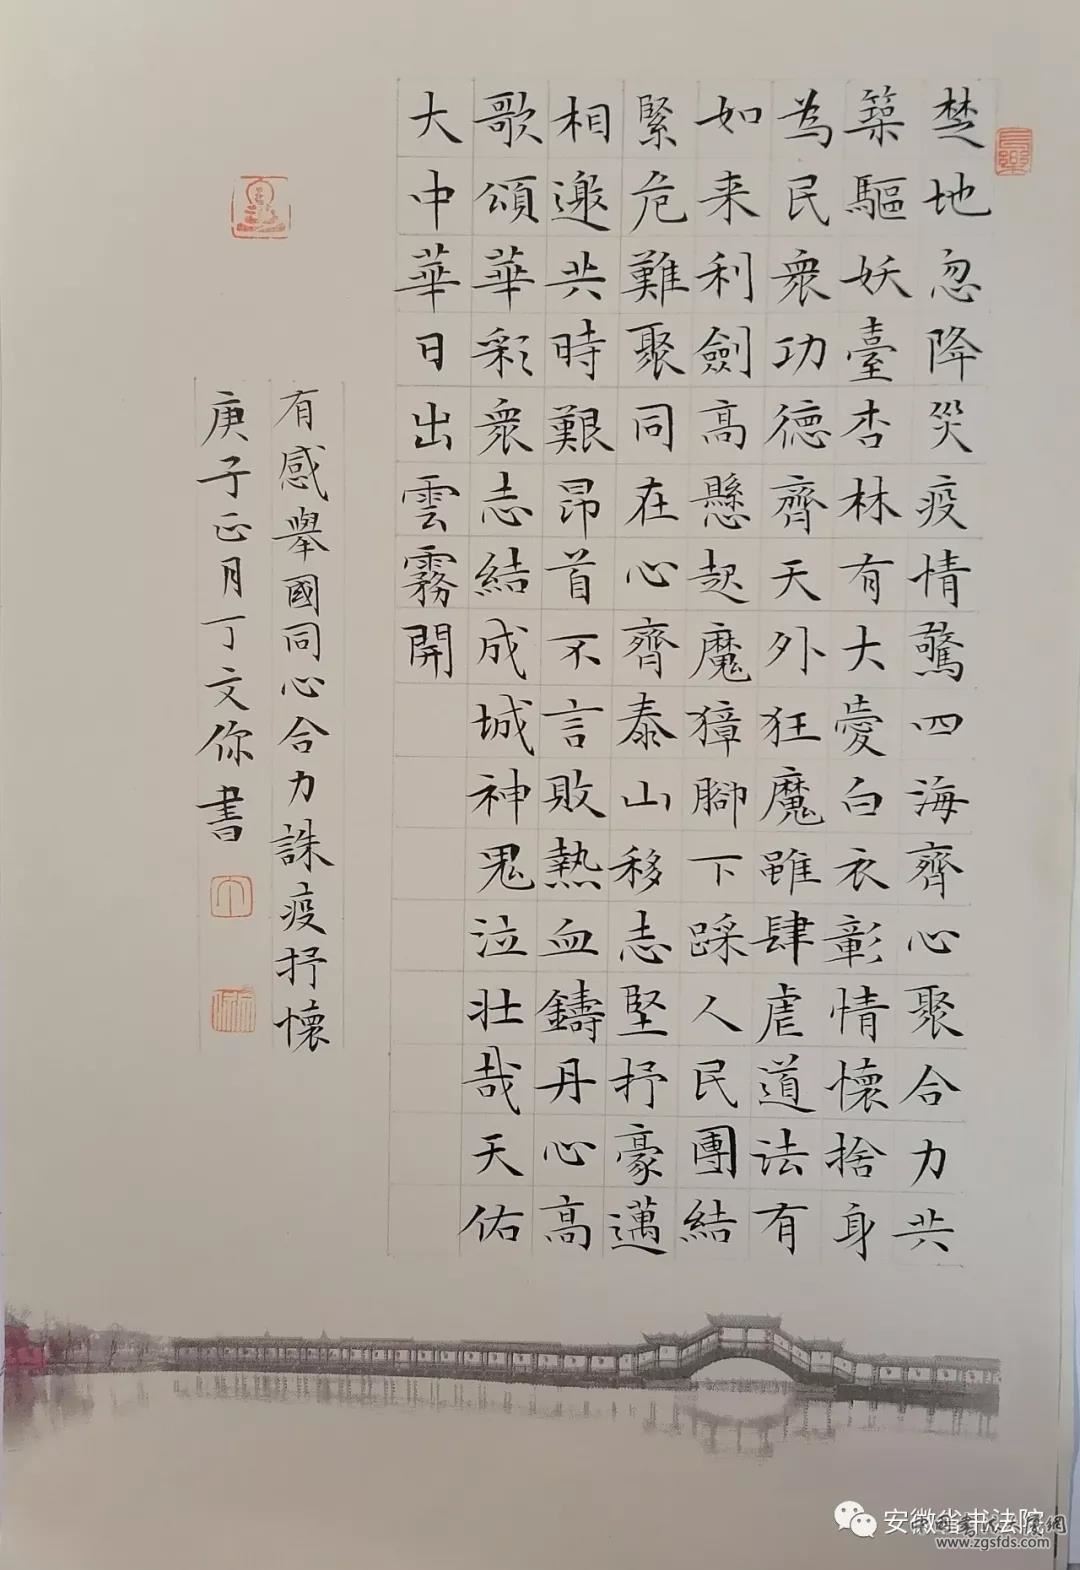 楚地忽降災疫情驚四海齊心聚合力共
築驅妖臺杏林有大愛白衣彰情懷捨身
為民衆功德齊天外狂魔雖肆虐道法有
如来利劍高懸起魔獐腳下踩人民團結
緊危難聚同在心齊泰山移志堅抒豪邁
相邀共時艱昂首不言敗熱血鑄丹心高
歌頌華彩衆志結成城神鬼泣壯哉天佑
大中華日出雲霧開
有感舉國同心合力誅疫抒懷
庚子正月丁文你書
安徽省书法院
www.zgsfds.com